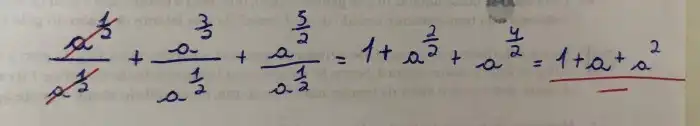 a^{1/2}/a^{1/2} + a^{3/2}/a^{1/2} + a^{5/2}/a^{1/2} = 1 + a^{2/2} + a^{4/2} = 1 + a + a^2